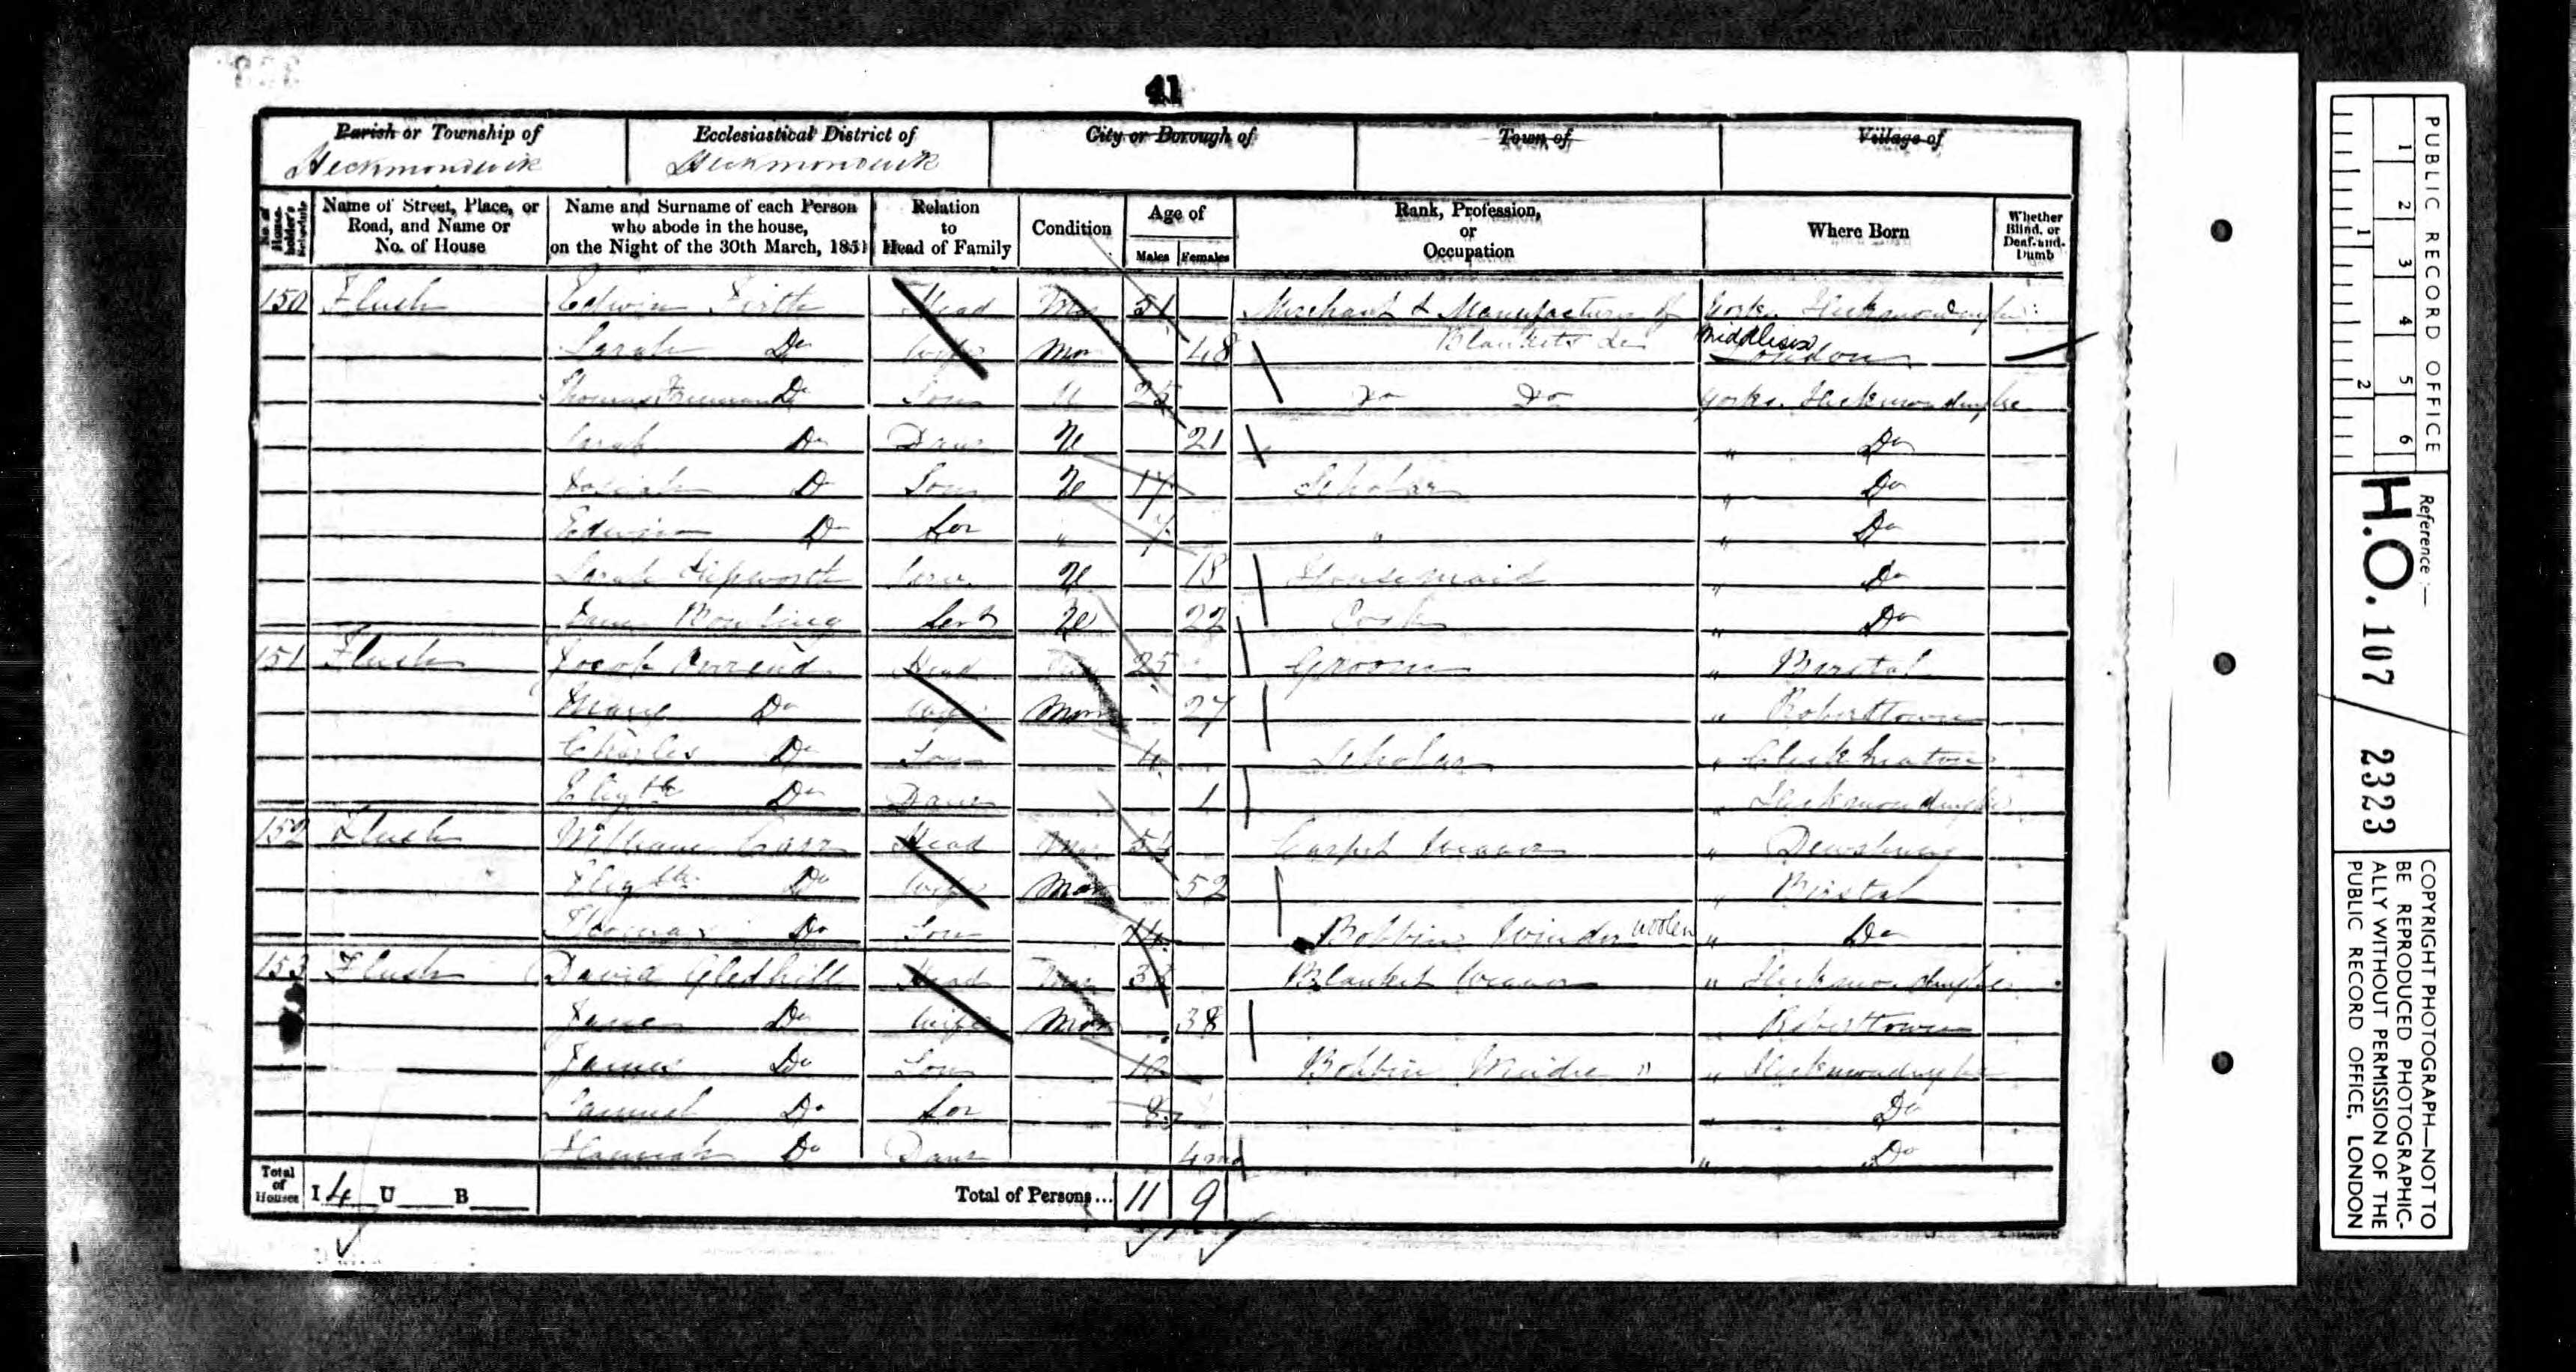 41
Parish or Township of
Heckmondwik
Ecclesiastical District of
Heckmondwik
City or Borough of
Town of
Village of
No. of House-holder's Schedule
Name of Street, Place, or Road, and Name or No. of House
Name and Surname of each Person who abode in the house, on the Night of the 30th March, 1851
Relation to Head of Family
Condition
Age of
Males Females
Rank, Profession, or Occupation
Where Born
Whether Blind, or Deaf-and-Dumb
150 Flush Edwin Firth Head Mar 51 Merchant & Manufacturer of Yorks. Heckmondwyke
Sarah Do Wife Mar 48 Blankets &c Middlesex London
Thomas Freeman Do Son U 25 Do Do Yorks. Heckmondwyke
Sarah Do Daur U 21 " Do
Josiah Do Son U 17 Scholar " Do
Edwin Do Son " 7 " " Do
Sarah Hepworth Serv. U 18 Housemaid " Do
Jane Bowling Servt U 22 Cook " Do
151 Flush Jacob Head Mar 25 Groom " Birstal
Do Wife Mar 27 " Roberttown
Charles Do Son 4 Scholar " Cleckheaton
Elizth Do Daur 1 " Heckmondwyke
152 Flush William Carr Head Mar 54 Carpet Weaver " Dewsbury
Elizth Do Wife Mar 52 " Birstal
Thomas Do Son 14 Bobbin Winder woolen " Do
153 Flush David Gledhill Head Mar Blanket Weaver " Heckmondwyke
Jane Do Wife Mar 38 " Roberttown
James Do Son 10 Bobbin Winder " " Heckmondwyke
Samuel Do Son 8 " Do
Hannah Do Daur 4 mo " Do
Total of Houses I 4 U B Total of Persons... 11 9
PUBLIC RECORD OFFICE
1 2 3 4 5 6
1 2
Reference :-
H.O. 107 / 2323
COPYRIGHT PHOTOGRAPH—NOT TO BE REPRODUCED PHOTOGRAPHIC-ALLY WITHOUT PERMISSION OF THE PUBLIC RECORD OFFICE, LONDON